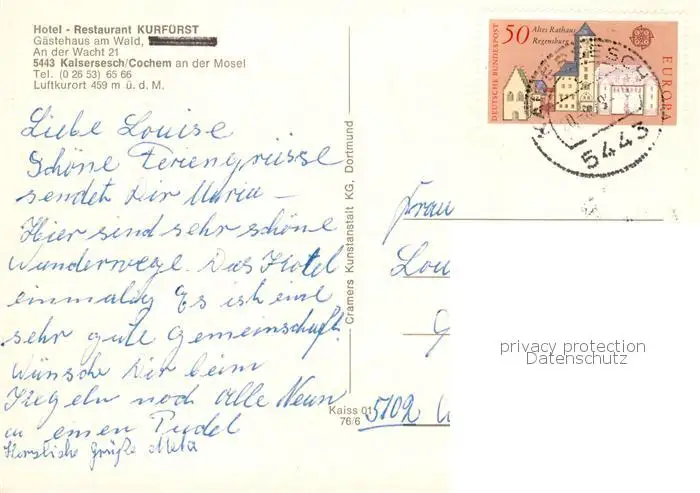 Hotel - Restaurant KURFÜRST
Gästehaus am Wald,
An der Wacht 21
5443 Kaisersesch/Cochem an der Mosel
Tel. (0 26 53) 65 66
Luftkurort 459 m ü. d. M.
50 Altes Rathaus
Regensburg
DEUTSCHE BUNDESPOST
EUROPA
KAISERSESCH
5443
Liebe Louise
Schöne Feriengrüsse
sendet Dir Maria –
Hier sind sehr schöne
Wanderwege. Das Hotel
einmalig Es ist eine
sehr gute Gemeinschaft.
Wünsche Dir beim
Kegeln noch alle Neun
u einen Pudel
Herzliche Grüße Meta
Cramers Kunstanstalt KG, Dortmund
Frau
Lou
G
5102 W
Kaiss 01
76/6
privacy protection
Datenschutz